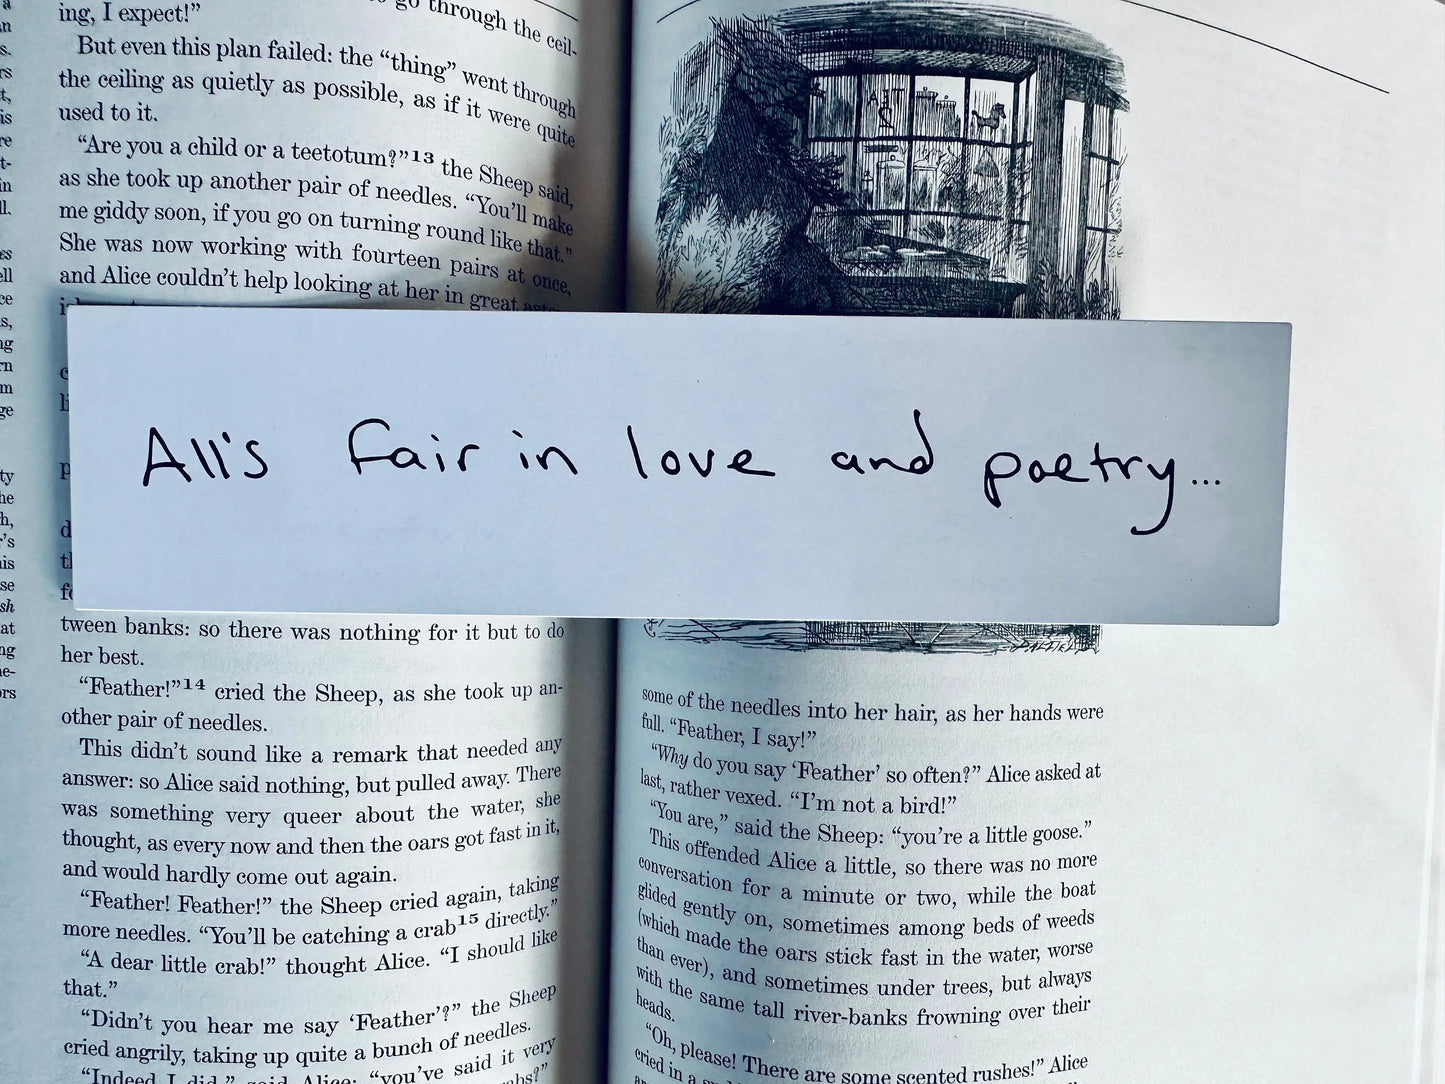 ing, I expect!"
go through the ceil-
But even this plan failed: the "thing" went through
the ceiling as quietly as possible, as if it were quite
used to it.
"Are you a child or a teetotum?"13 the Sheep said,
as she took up another pair of needles. "You'll make
me giddy soon, if you go on turning round like that."
She was now working with fourteen pairs at once,
and Alice couldn't help looking at her in great
All's fair in love and poetry...
tween banks: so there was nothing for it but to do
her best.
"Feather!"14 cried the Sheep, as she took up an-
other pair of needles.
This didn't sound like a remark that needed any
answer: so Alice said nothing, but pulled away. There
was something very queer about the water, she
thought, as every now and then the oars got fast in it,
and would hardly come out again.
"Feather! Feather!" the Sheep cried again, taking
more needles. "You'll be catching a crab15 directly."
"A dear little crab!" thought Alice. "I should like
that."
"Didn't you hear me say 'Feather'?" the Sheep
cried angrily, taking up quite a bunch of needles.
"Indeed I did," said Alice: "you've said it very
some of the needles into her hair, as her hands were
full. "Feather, I say!"
"Why do you say 'Feather' so often?" Alice asked at
last, rather vexed. "I'm not a bird!"
"You are," said the Sheep: "you're a little goose."
This offended Alice a little, so there was no more
conversation for a minute or two, while the boat
glided gently on, sometimes among beds of weeds
(which made the oars stick fast in the water, worse
than ever), and sometimes under trees, but always
with the same tall river-banks frowning over their
heads.
"Oh, please! There are some scented rushes!" Alice
cried in a